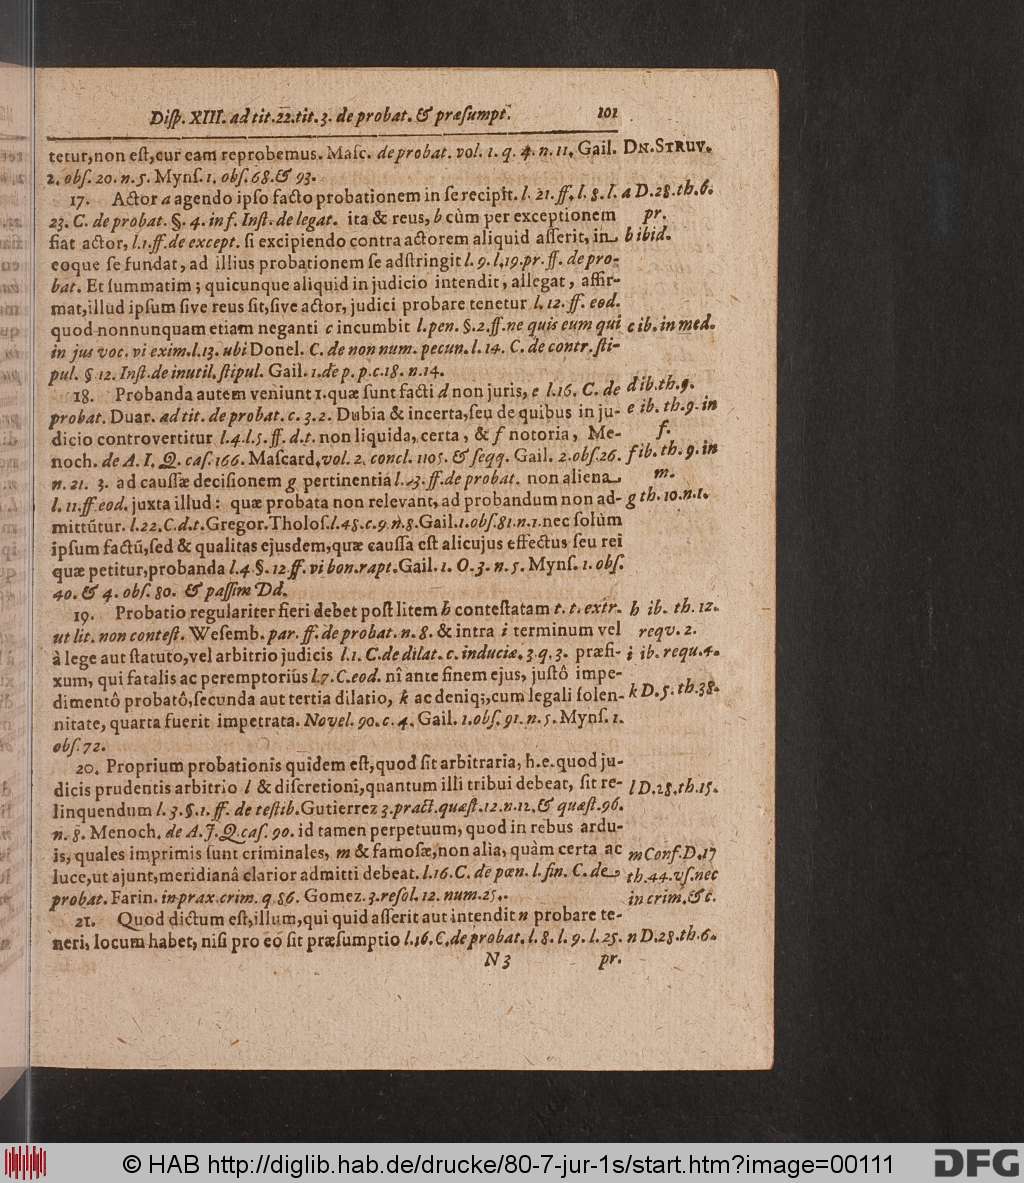 Diſp. XIII. ad tit. 22. tit. 3. de probat. & præſumpt. 101
tetur, non eſt, cur eam reprobemus. Maſc. de probat. vol. 1. q. 4. n. 11. Gail. Dn. Struv.
2. obſ. 20. n. 5. Mynſ. 1. obſ. 68. & 93.
17. Actor a agendo ipſo facto probationem in ſe recipit. l. 21. ff. l. 8. l. a D. 28. th. 6.
23. C. de probat. §. 4. inf. Inſt. de legat. ita & reus, b cùm per exceptionem pr.
fiat actor, l. 1. ff. de except. ſi excipiendo contra actorem aliquid aſſerit, in b ibid.
eoque ſe fundat, ad illius probationem ſe adſtringit l. 9. l. 19. pr. ff. de pro-
bat. Et ſummatim; quicunque aliquid in judicio intendit, allegat, affir-
mat, illud ipſum ſive reus ſit, ſive actor, judici probare tenetur l. 12. ff. eod.
quod nonnunquam etiam neganti c incumbit l. pen. §. 2. ff. ne quis eum qui c ib. in med.
in jus voc. vi exim. l. 13. ubi Donel. C. de non num. pecun. l. 14. C. de contr. ſti-
pul. § 12. Inſt. de inutil. ſtipul. Gail. 1. de p. p. c. 18. n. 14.
18. Probanda autem veniunt 1. quæ ſunt facti d non juris, e l. 16. C. de d ib. th. 9.
probat. Duar. ad tit. de probat. c. 3. 2. Dubia & incerta, ſeu de quibus in ju- e ib. th. 9. in
dicio controvertitur l. 4. l. 5. ff. d. t. non liquida, certa, & f notoria, Me- f.
noch. de A. I. Q. caſ. 166. Maſcard. vol. 2. concl. 1105. & ſeqq. Gail. 2. obſ. 26. f ib. th. 9. in
n. 21. 3. ad cauſſæ deciſionem g pertinentia l. 23. ff. de probat. non aliena m.
l. 11. ff. eod. juxta illud: quæ probata non relevant, ad probandum non ad- g th. 10. n. 1.
mittūtur. l. 22. C. d. t. Gregor. Tholoſ. l. 48. c. 9. n. 8. Gail. 1. obſ. 81. n. 1. nec ſolùm
ipſum factū, ſed & qualitas ejusdem, quæ cauſſa eſt alicujus effectus ſeu rei
quæ petitur, probanda l. 4. §. 12. ff. vi bon. rapt. Gail. 1. O. 3. n. 5. Mynſ. 1. obſ.
40. & 4. obſ. 80. & paſſim Dd.
19. Probatio regulariter fieri debet poſt litem h conteſtatam t. t. extr. h ib. th. 12.
ut lit. non conteſt. Weſemb. par. ff. de probat. n. 8. & intra i terminum vel requ. 2.
à lege aut ſtatuto, vel arbitrio judicis l. 1. C. de dilat. c. induciæ. 3. q. 3. præfi- i ib. requ. 4.
xum, qui fatalis ac peremptorius l. 7. C. eod. nî ante finem ejus, juſtô impe-
dimentô probatô, ſecunda aut tertia dilatio, k ac deniq;, cum legali ſolen- k D. 5. th. 38.
nitate, quarta fuerit impetrata. Novel. 90. c. 4. Gail. 1. obſ. 91. n. 5. Mynſ. 1.
obſ. 72.
20. Proprium probationis quidem eſt, quod ſit arbitraria, h. e. quod ju-
dicis prudentis arbitrio l & diſcretioni, quantum illi tribui debeat, ſit re- l D. 28. th. 15.
linquendum l. 3. §. 1. ff. de teſtib. Gutierrez 3. pract. quæſt. 12. n. 12. & quæſt. 96.
n. 8. Menoch. de A. J. Q. caſ. 90. id tamen perpetuum, quod in rebus ardu-
is, quales imprimis ſunt criminales, m & famoſæ, non alia, quàm certa ac m Conf. D. 17
luce, ut ajunt, meridianâ clarior admitti debeat. l. 16. C. de pœn. l. fin. C. de th. 44. vſ. nec
probat. Farin. in prax. crim. q. 86. Gomez. 3. reſol. 12. num. 25. in crim. &c.
21. Quod dictum eſt, illum, qui quid aſſerit aut intendit n probare te-
neri, locum habet, niſi pro eo ſit præſumptio l. 16. C. de probat. l. 8. l. 9. l. 25. n D. 28. th. 6.
N 3 pr.
© HAB http://diglib.hab.de/drucke/80-7-jur-1s/start.htm?image=00111 DFG